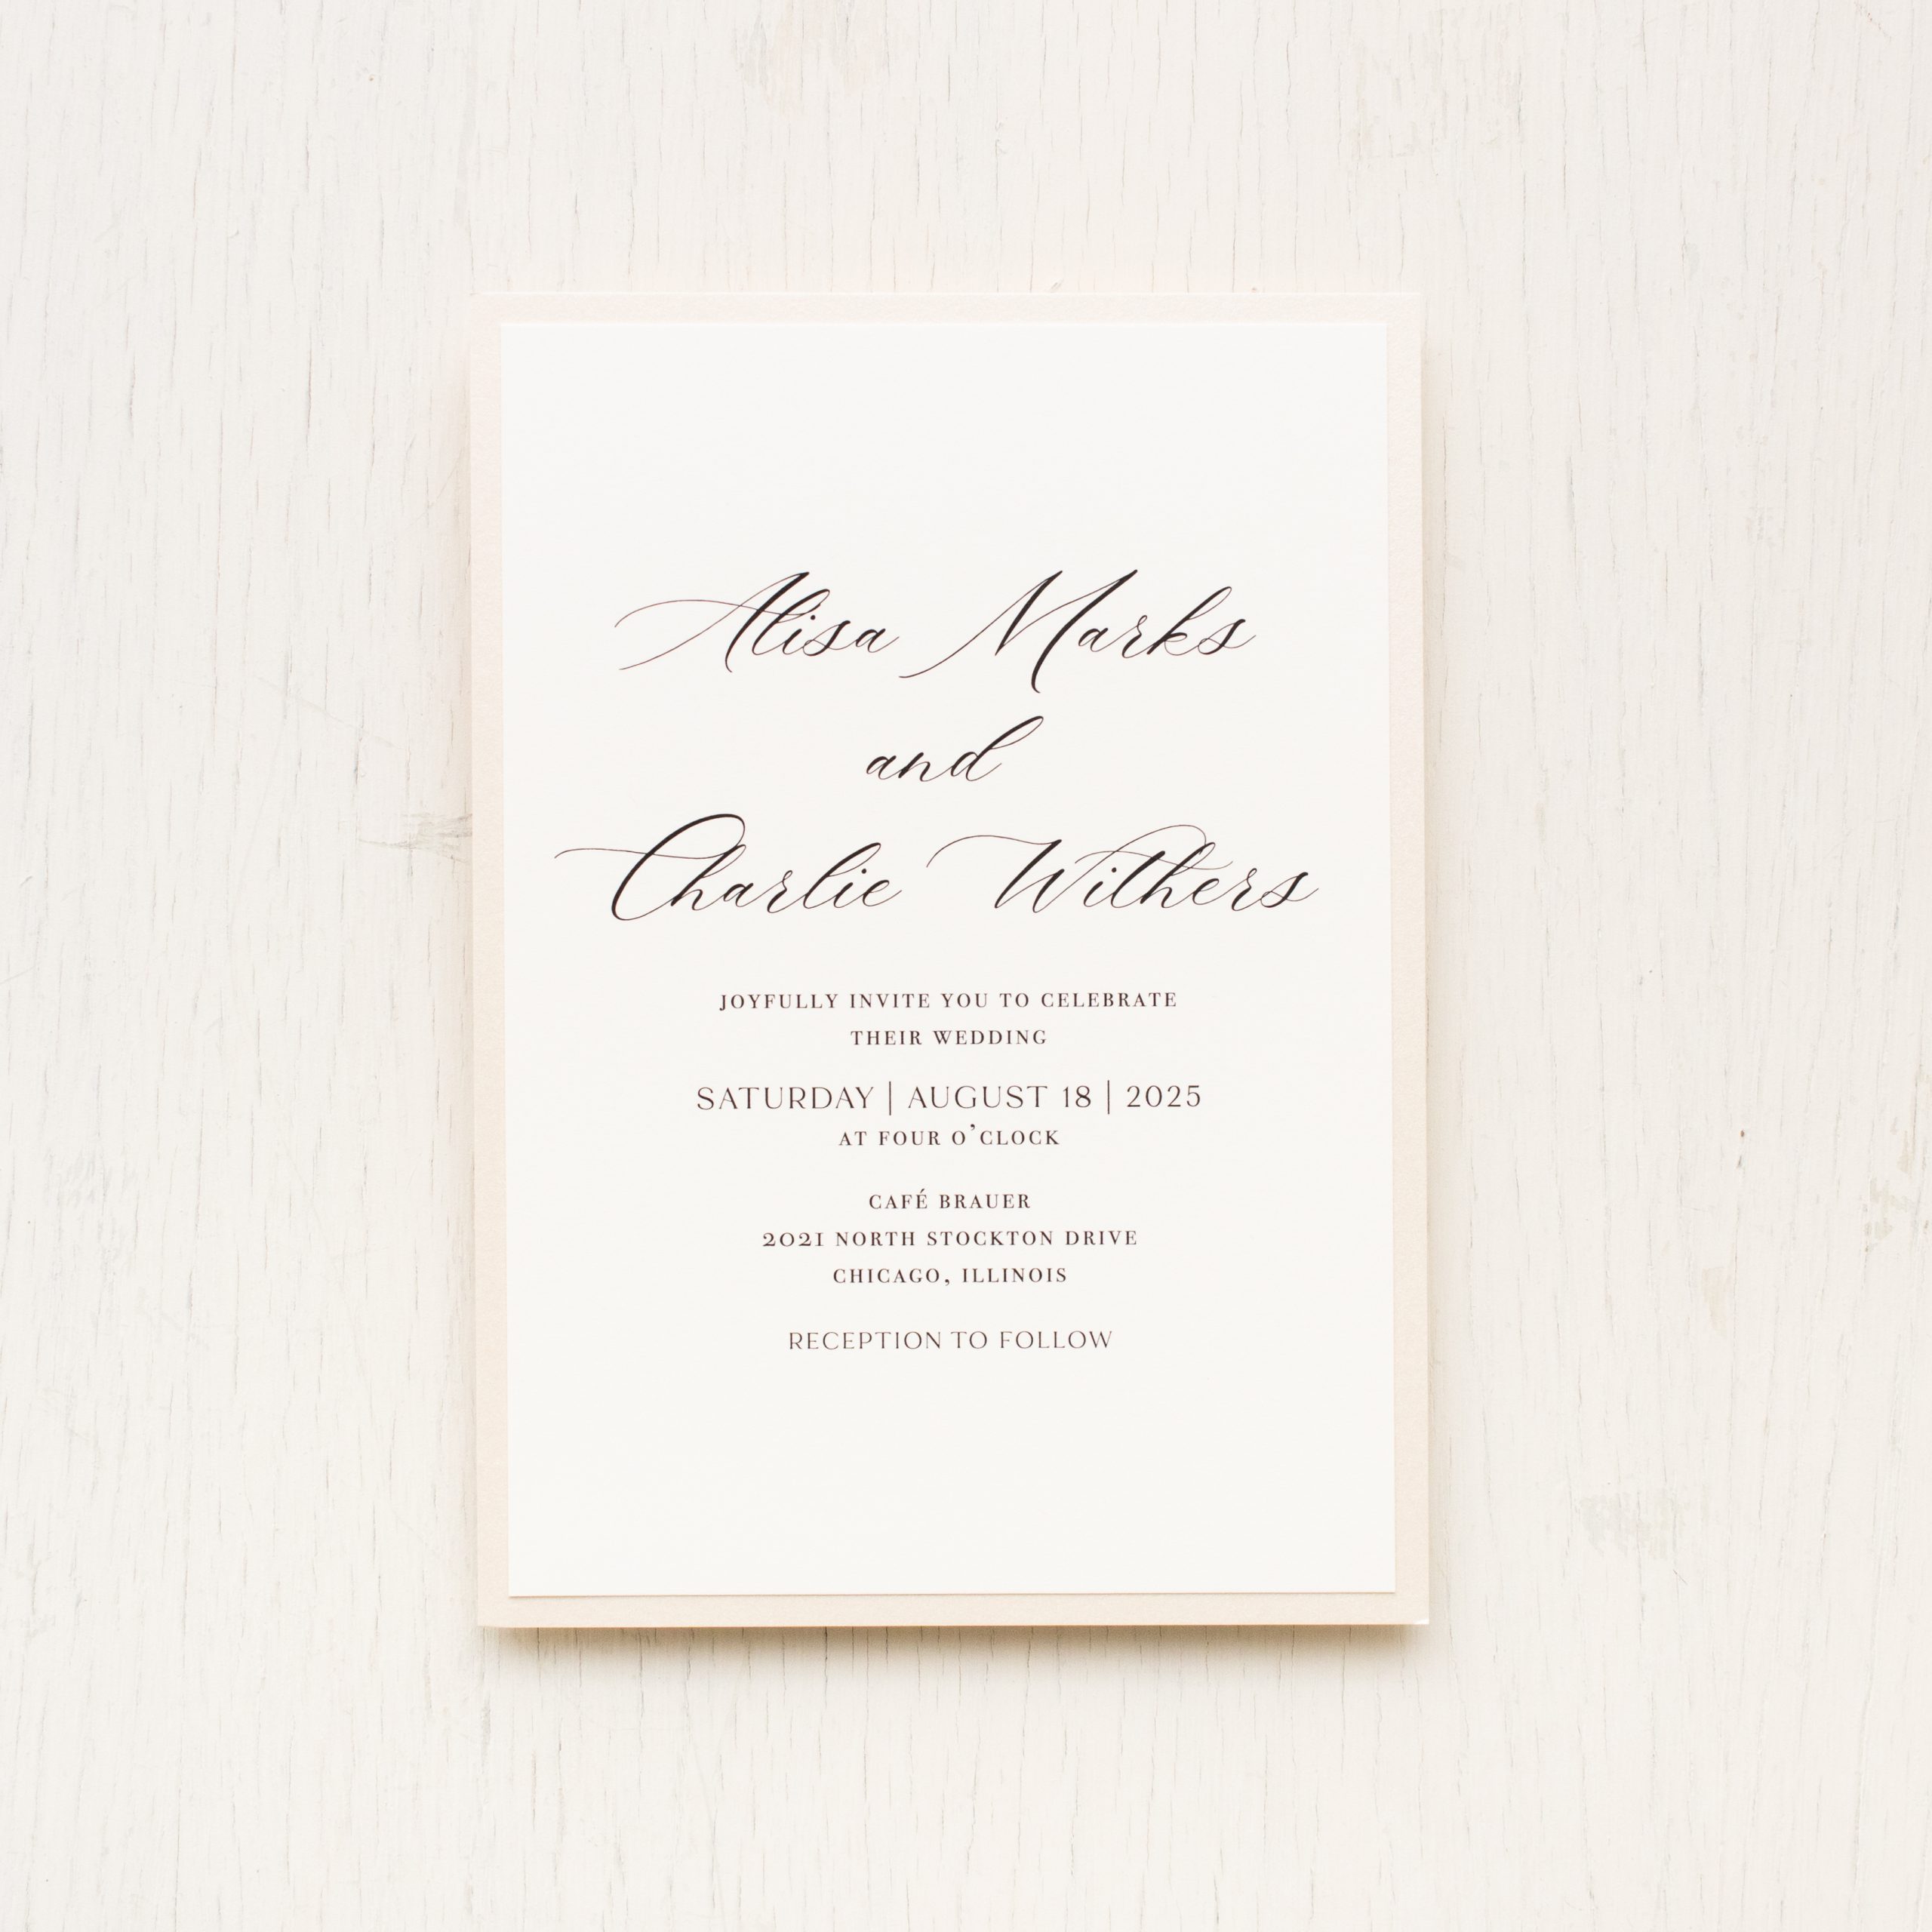 Alisa Marks
and
Charlie Withers
JOYFULLY INVITE YOU TO CELEBRATE
THEIR WEDDING
SATURDAY | AUGUST 18 | 2025
AT FOUR O’CLOCK
CAFÉ BRAUER
2021 NORTH STOCKTON DRIVE
CHICAGO, ILLINOIS
RECEPTION TO FOLLOW